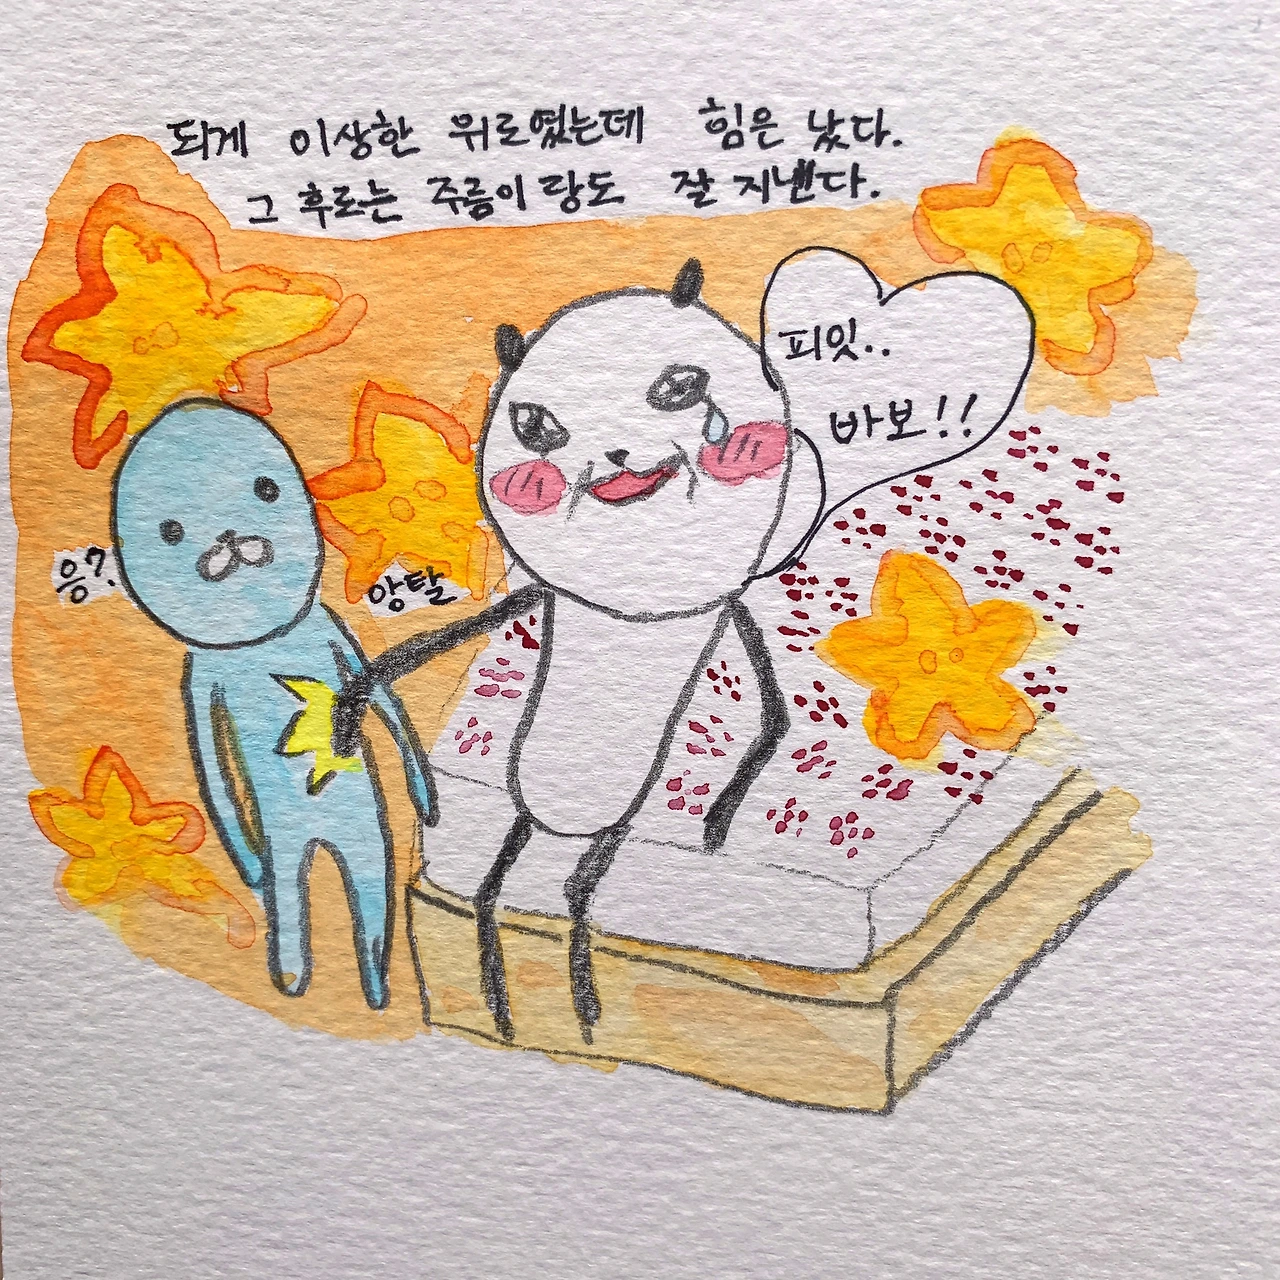 되게 이상한 위로였는데 힘은 났다.
그 후로는 주름이랑도 잘 지낸다.
피잇..
바보!!
응?.
앙탈